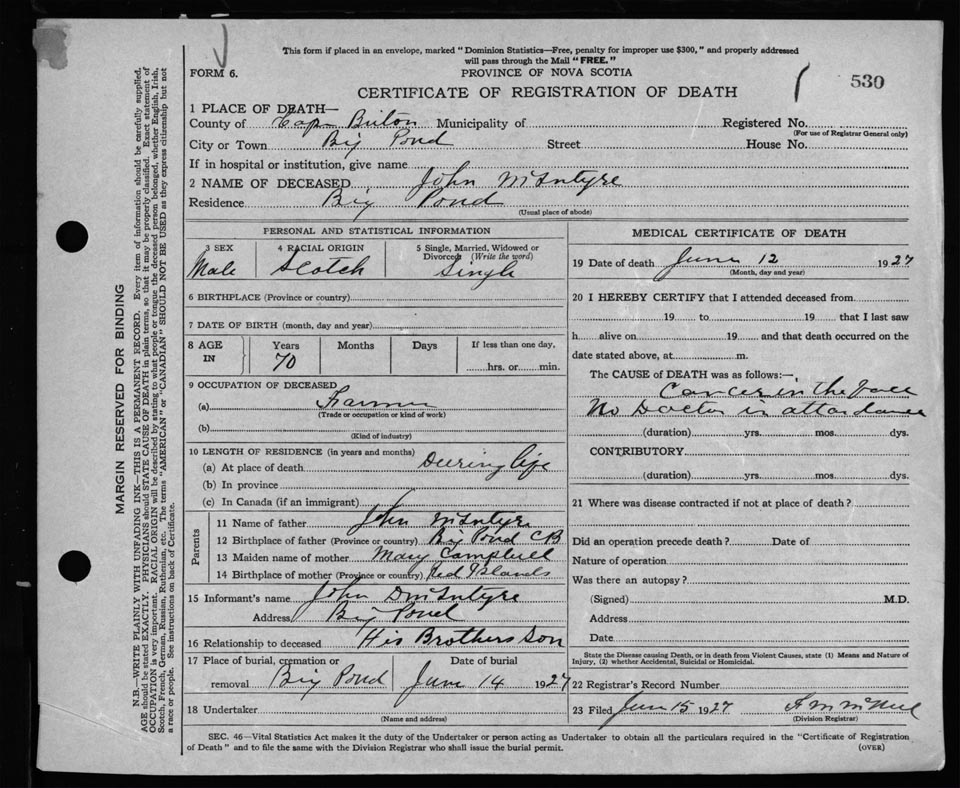 This form if placed in an envelope, marked "Dominion Statistics—Free, penalty for improper use $300," and properly addressed
will pass through the Mail "FREE."
FORM 6.
PROVINCE OF NOVA SCOTIA
530
CERTIFICATE OF REGISTRATION OF DEATH
1 PLACE OF DEATH—
County of Cape Breton Municipality of Registered No.
(For use of Registrar General only)
City or Town Big Pond Street House No.
If in hospital or institution, give name
2 NAME OF DECEASED John McIntyre
Residence Big Pond
(Usual place of abode)
PERSONAL AND STATISTICAL INFORMATION
3 SEX 4 RACIAL ORIGIN 5 Single, Married, Widowed or
Divorced (Write the word)
Male Scotch Single
6 BIRTHPLACE (Province or country)
7 DATE OF BIRTH (month, day and year)
8 AGE IN Years Months Days If less than one day,
70 hrs. or min.
9 OCCUPATION OF DECEASED
(a) Farmer
(Trade or occupation or kind of work)
(b)
(Kind of industry)
10 LENGTH OF RESIDENCE (in years and months)
(a) At place of death Deering life
(b) In province
(c) In Canada (if an immigrant)
Parents
11 Name of father John McIntyre
12 Birthplace of father (Province or country) Big Pond CB
13 Maiden name of mother Mary Campbell
14 Birthplace of mother (Province or country) Red Islands
15 Informant's name John D McIntyre
Address Big Pond
16 Relationship to deceased His Brothers Son
17 Place of burial, cremation or Date of burial
removal Big Pond June 14 1927
18 Undertaker
(Name and address)
MEDICAL CERTIFICATE OF DEATH
19 Date of death June 12 1927
(Month, day and year)
20 I HEREBY CERTIFY that I attended deceased from
19 to 19 that I last saw
h alive on 19 and that death occurred on the
date stated above, at m.
The CAUSE of DEATH was as follows:—
Cancer in the face
No Doctor in attendance
(duration) yrs. mos. dys.
CONTRIBUTORY
(duration) yrs. mos. dys.
21 Where was disease contracted if not at place of death?
Did an operation precede death? Date of
Nature of operation
Was there an autopsy?
(Signed) M.D.
Address
Date
State the Disease causing Death, or in death from Violent Causes, state (1) Means and Nature of
Injury, (2) whether Accidental, Suicidal or Homicidal.
22 Registrar's Record Number
23 Filed June 15 1927
(Division Registrar)
SEC. 46—Vital Statistics Act makes it the duty of the Undertaker or person acting as Undertaker to obtain all the particulars required in the "Certificate of Registration
of Death" and to file the same with the Division Registrar who shall issue the burial permit.
(OVER)
MARGIN RESERVED FOR BINDING
N.B.—WRITE PLAINLY WITH UNFADING INK—THIS IS A PERMANENT RECORD. Every item of information should be carefully supplied.
AGE should be stated EXACTLY. PHYSICIANS should STATE CAUSE OF DEATH in plain terms, so that it may be properly classified. Exact statement of
OCCUPATION is very important. RACIAL ORIGIN will be described by stating to what people or tongue the deceased person belonged, whether English, Irish,
Scotch, French, German, Russian, Ruthenian, etc. The terms "AMERICAN" or "CANADIAN" SHOULD NOT BE USED as they express citizenship but not
a race or people. See instructions on back of Certificate.